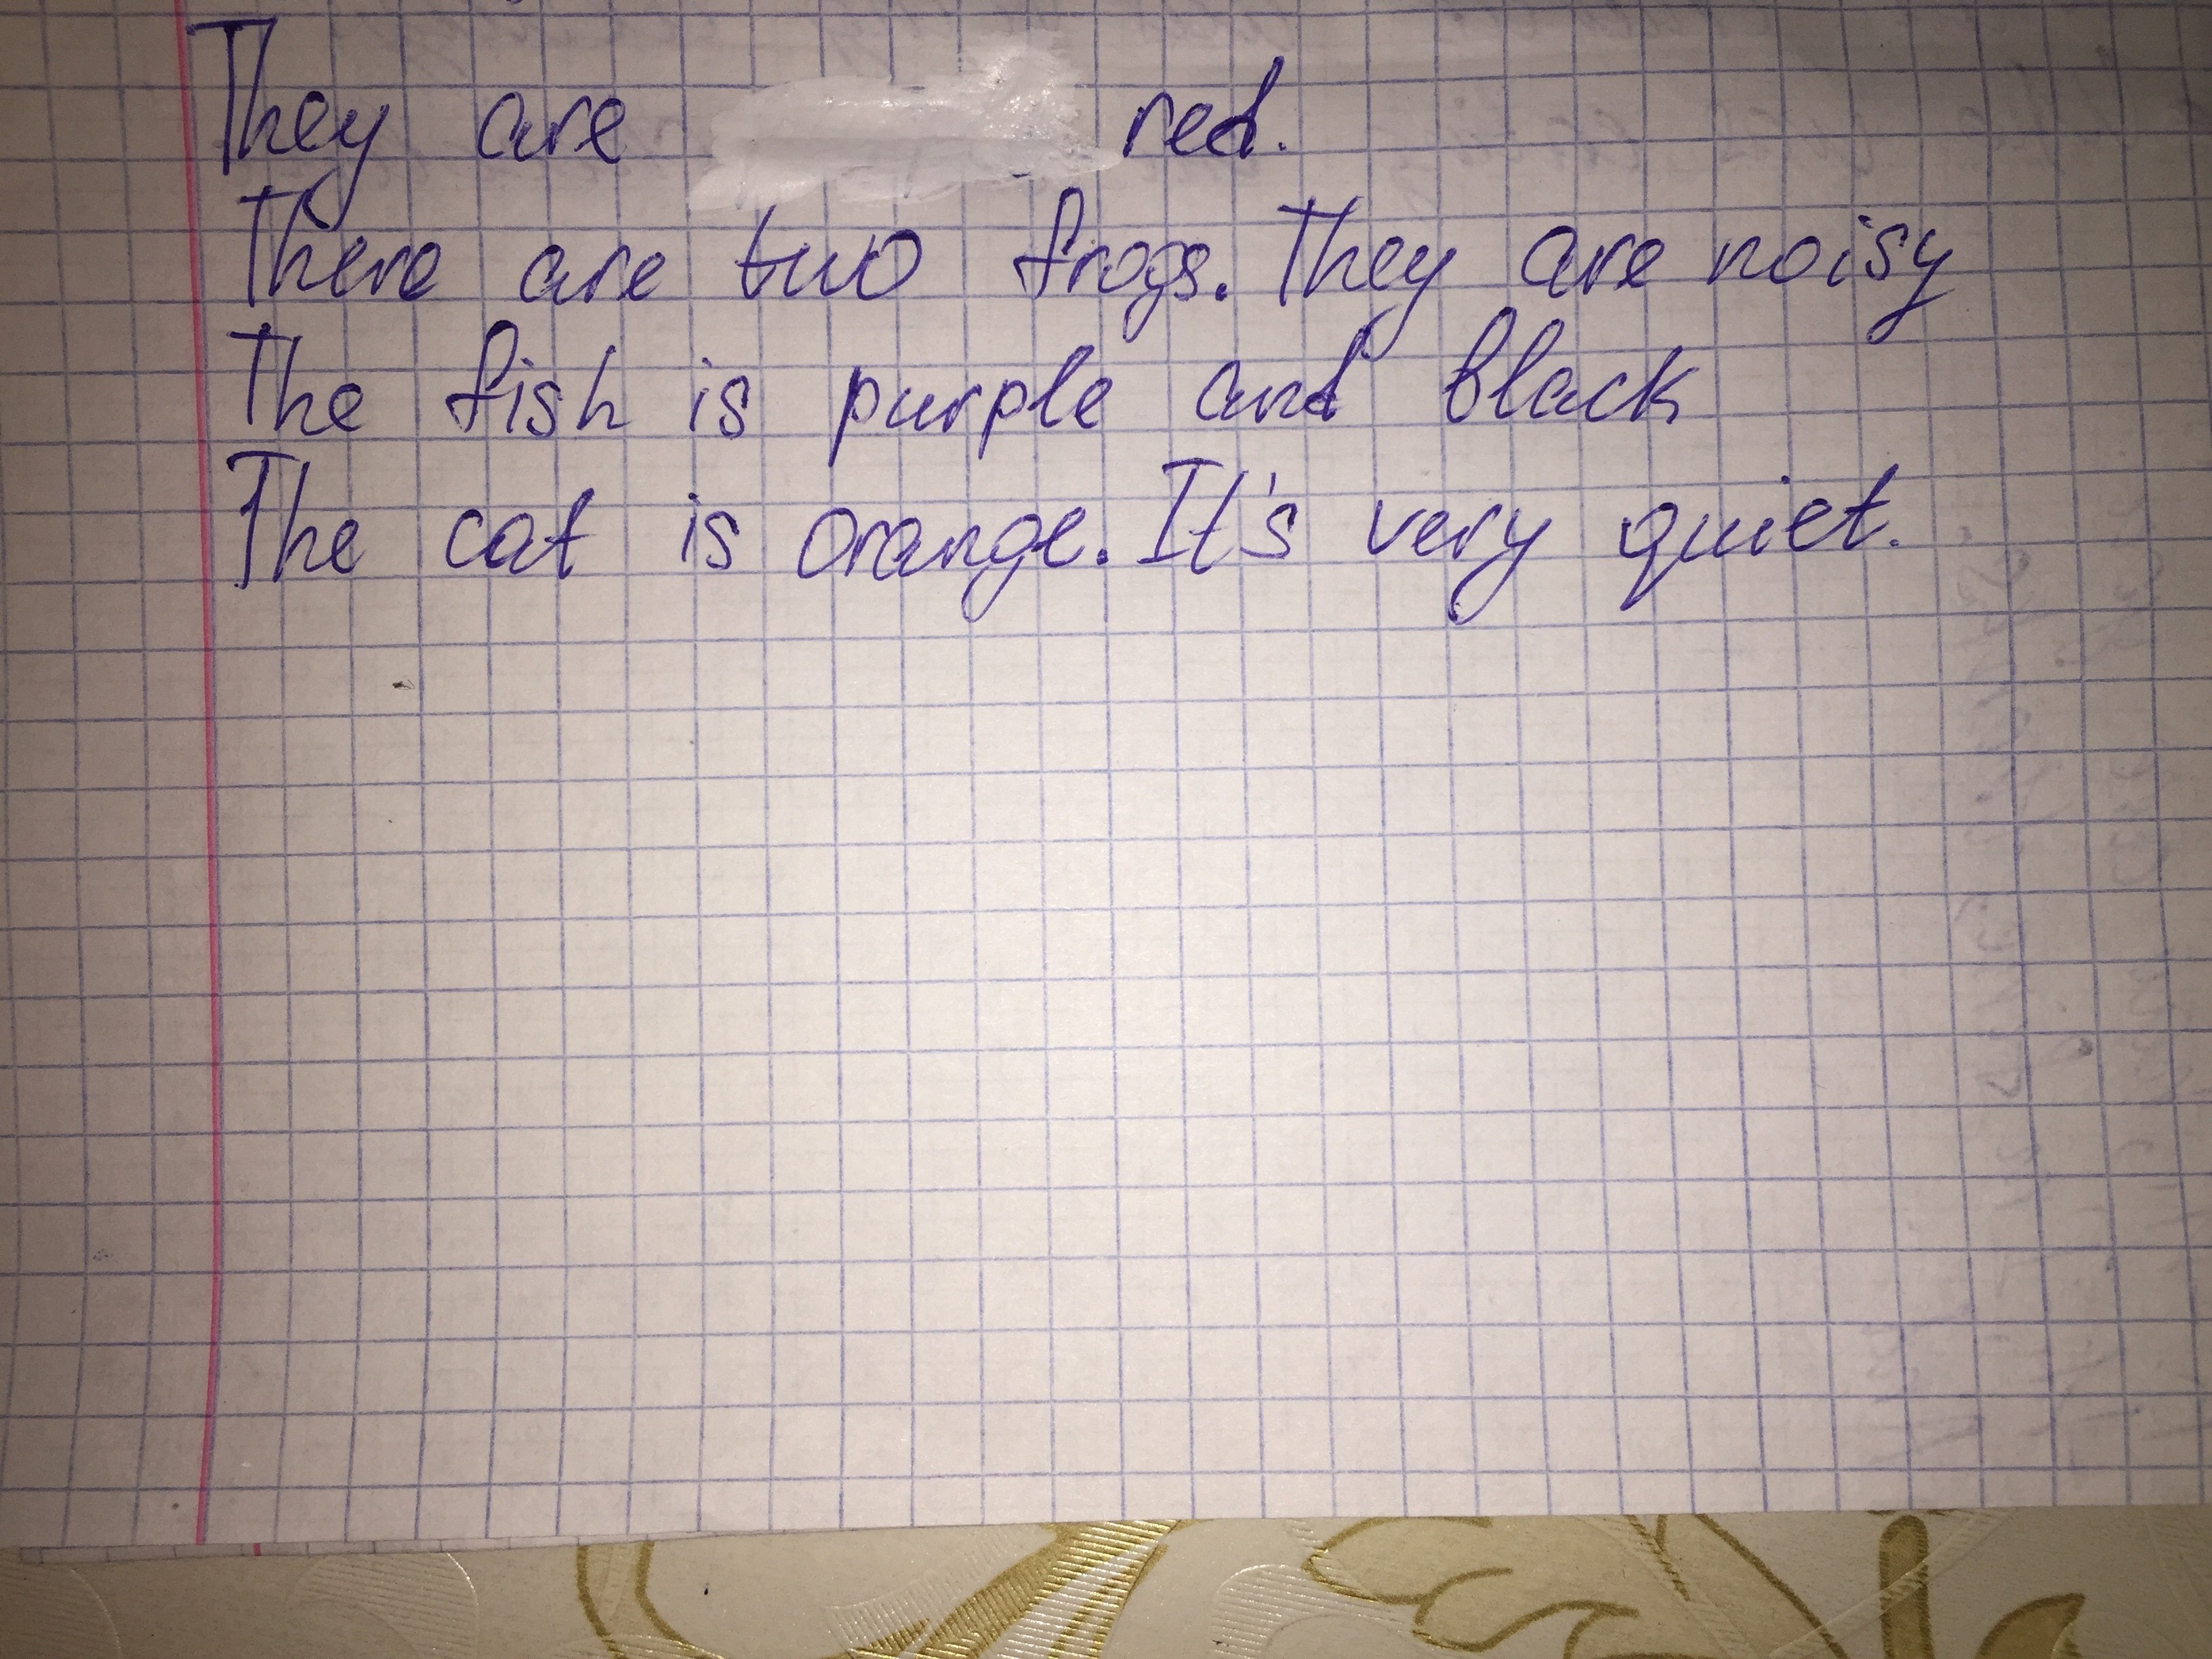 They are red.
There are two frogs. They are noisy
The fish is purple and black
The cat is orange. It's very quiet.